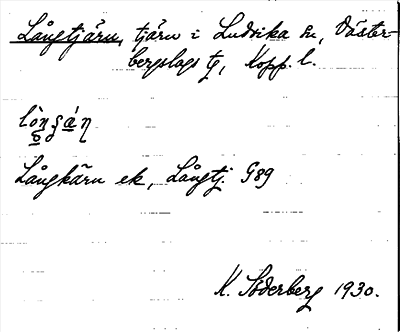 Långtjärn, tjärn i Ludvika sn, Väster-
bergslags tg, Kopp. l.
Långkärn ek, Långtj. G89
K. Söderberg 1930.